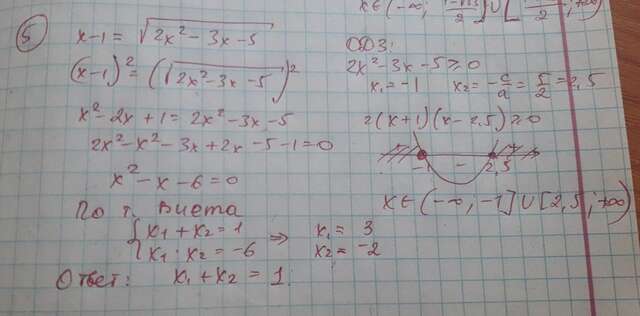 x ∈ (-∞; (1-√13)/2] ∪ [ /2; +∞)
5
x-1 = √(2x² - 3x - 5)
(x-1)² = (√(2x² - 3x - 5))²
x² - 2x + 1 = 2x² - 3x - 5
2x² - x² - 3x + 2x - 5 - 1 = 0
x² - x - 6 = 0
По т. Виета
{ x₁ + x₂ = 1
x₁ · x₂ = -6 ⇒ x₁ = 3
x₂ = -2
Ответ: x₁ + x₂ = 1
ОДЗ:
2x² - 3x - 5 ≥ 0
x₁ = -1 x₂ = -c/a = 5/2 = 2,5
2(x+1)(x-2,5) ≥ 0
+ - +
-1 2,5
x ∈ (-∞; -1] ∪ [2,5; +∞)